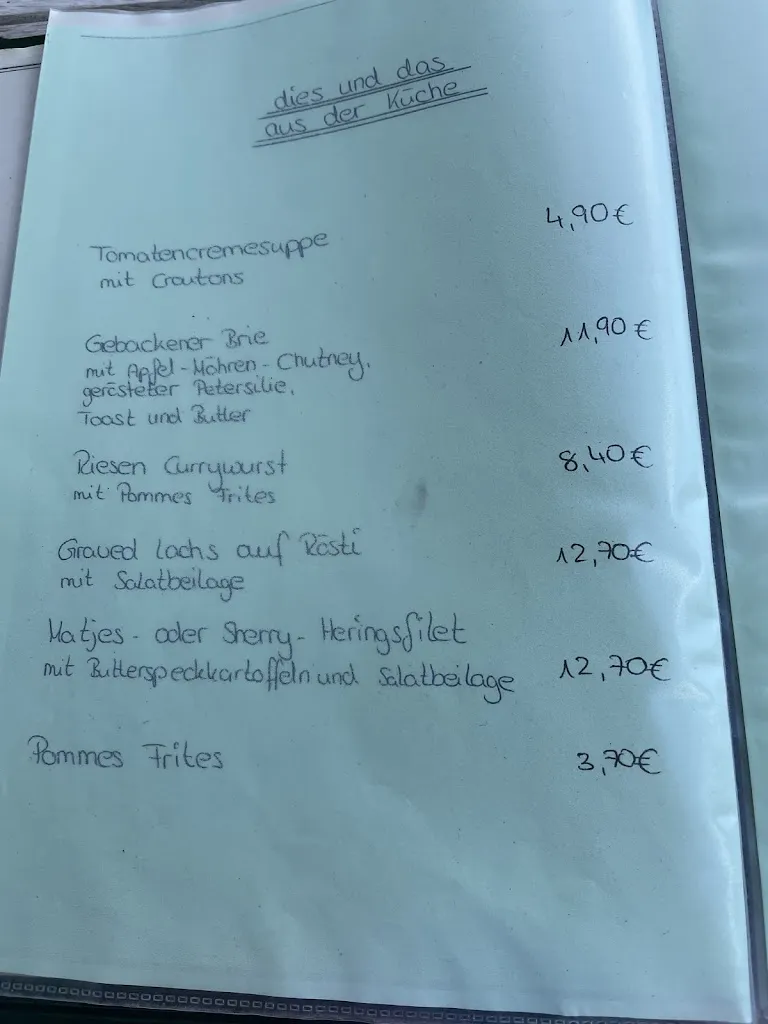 dies und das
aus der Küche
Tomatencremesuppe 4,90€
mit Croutons
Gebackener Brie 11,90€
mit Apfel-Möhren-Chutney,
gerösteter Petersilie,
Toast und Butter
Riesen Currywurst 8,40€
mit Pommes Frites
Graved Lachs auf Rösti 12,70€
mit Salatbeilage
Matjes- oder Sherry-Heringsfilet
mit Butterspeckkartoffeln und Salatbeilage 12,70€
Pommes Frites 3,70€